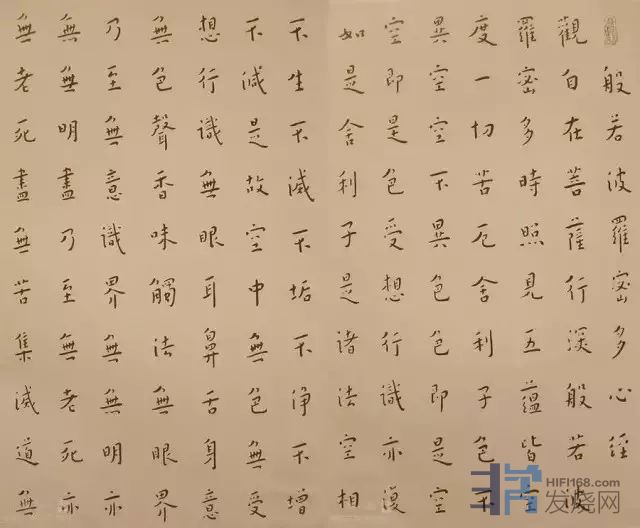 般若波羅密多心經
觀自在菩薩行深般若波
羅密多時照見五蘊皆空
度一切苦厄舍利子色不
異空空不異色色即是空
空即是色受想行識亦復
如是舍利子是諸法空相
不生不滅不垢不淨不增
不減是故空中無色無受
想行識無眼耳鼻舌身意
無色聲香味觸法無眼界
乃至無意識界無無明亦
無無明盡乃至無老死亦
無老死盡無苦集滅道無
HIFI168.com
发烧网